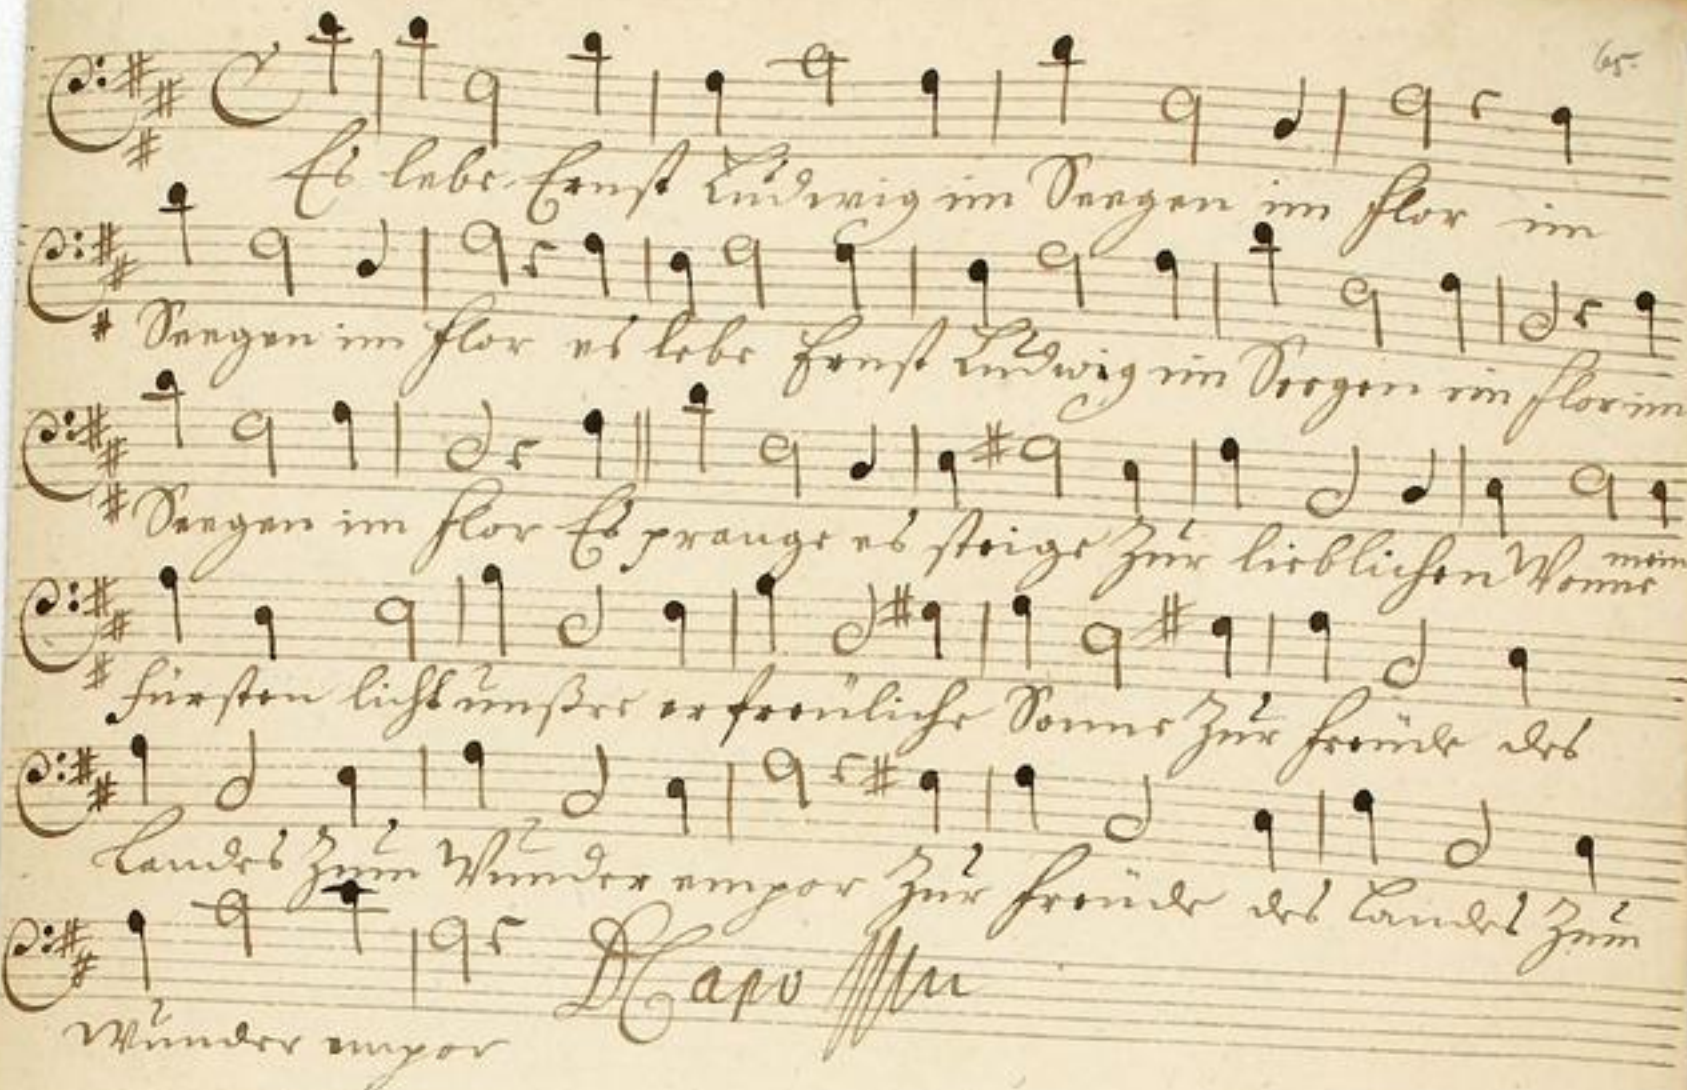 65.
Es lebe Ernst Ludwig im Seegen im Flor im
Seegen im Flor es lebe Ernst Ludwig im Seegen im Flor im
Seegen im Flor Es prange es steige zur lieblichen Wonne mein
Fürsten licht unßre erfreuliche Sonne zur Freüde des
Landes zum Wunder empor zur Freüde des Landes zum
D Capo
Wunder empor